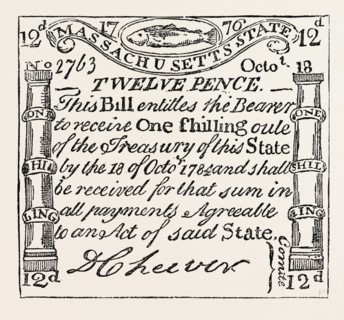 12d 17 76. 12d
MASSACHUSETTS STATE
No 2763 Octot. 18
TWELVE PENCE.
This Bill entitles the Bearer
to receive One ſhilling oute
of the Treasury of this State
by the 18 of Octot. 1784 and shall
be received for that sum in
all payments Agreeable
to an Act of said State.
DCheever
Comitte
ONE
SHIL
LING
ONE
SHIL
LING
12d 12d